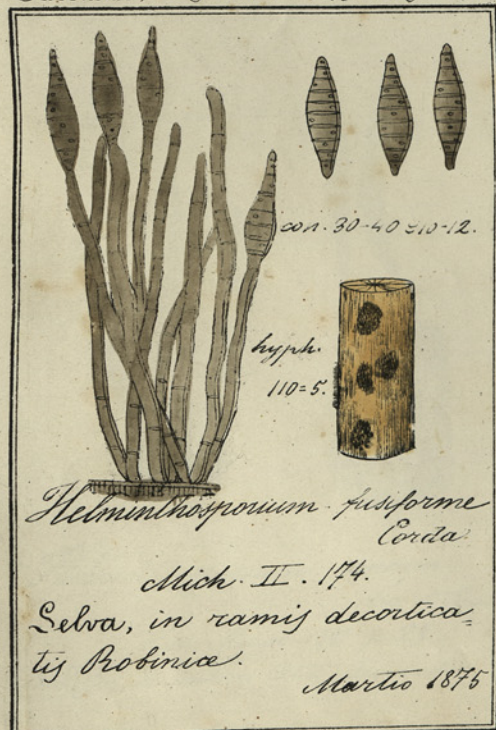 con. 30-40=10-12.
hyph.
110=5.
Helminthosporium fusiforme
Corda
Mich. II. 174.
Selva, in ramis decortica=
tis Robiniæ.
Martio 1875